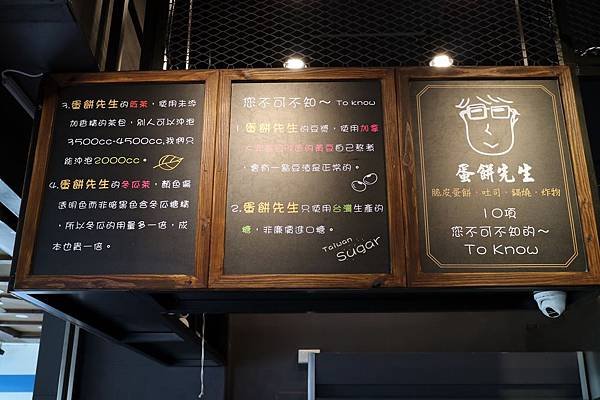 蛋餅先生
脆皮蛋餅．吐司．鍋燒．炸物
10項
您不可不知的～
To Know
您不可不知～ To know
1.蛋餅先生的豆漿，使用加拿
大非基因改造的黃豆自己熬煮
，會有一點豆渣是正常的。
2.蛋餅先生只使用台灣生產的
糖，非廉價進口糖。
Taiwan
sugar
3.蛋餅先生的紅茶，使用未添
加香精的茶包，別人可以沖泡
3500cc-4500cc,我們只
能沖泡2000cc。
4.蛋餅先生的冬瓜茶，顏色偏
透明色而非暗黑色含冬瓜糖磚
，所以冬瓜的用量多一倍，成
本也貴一倍。